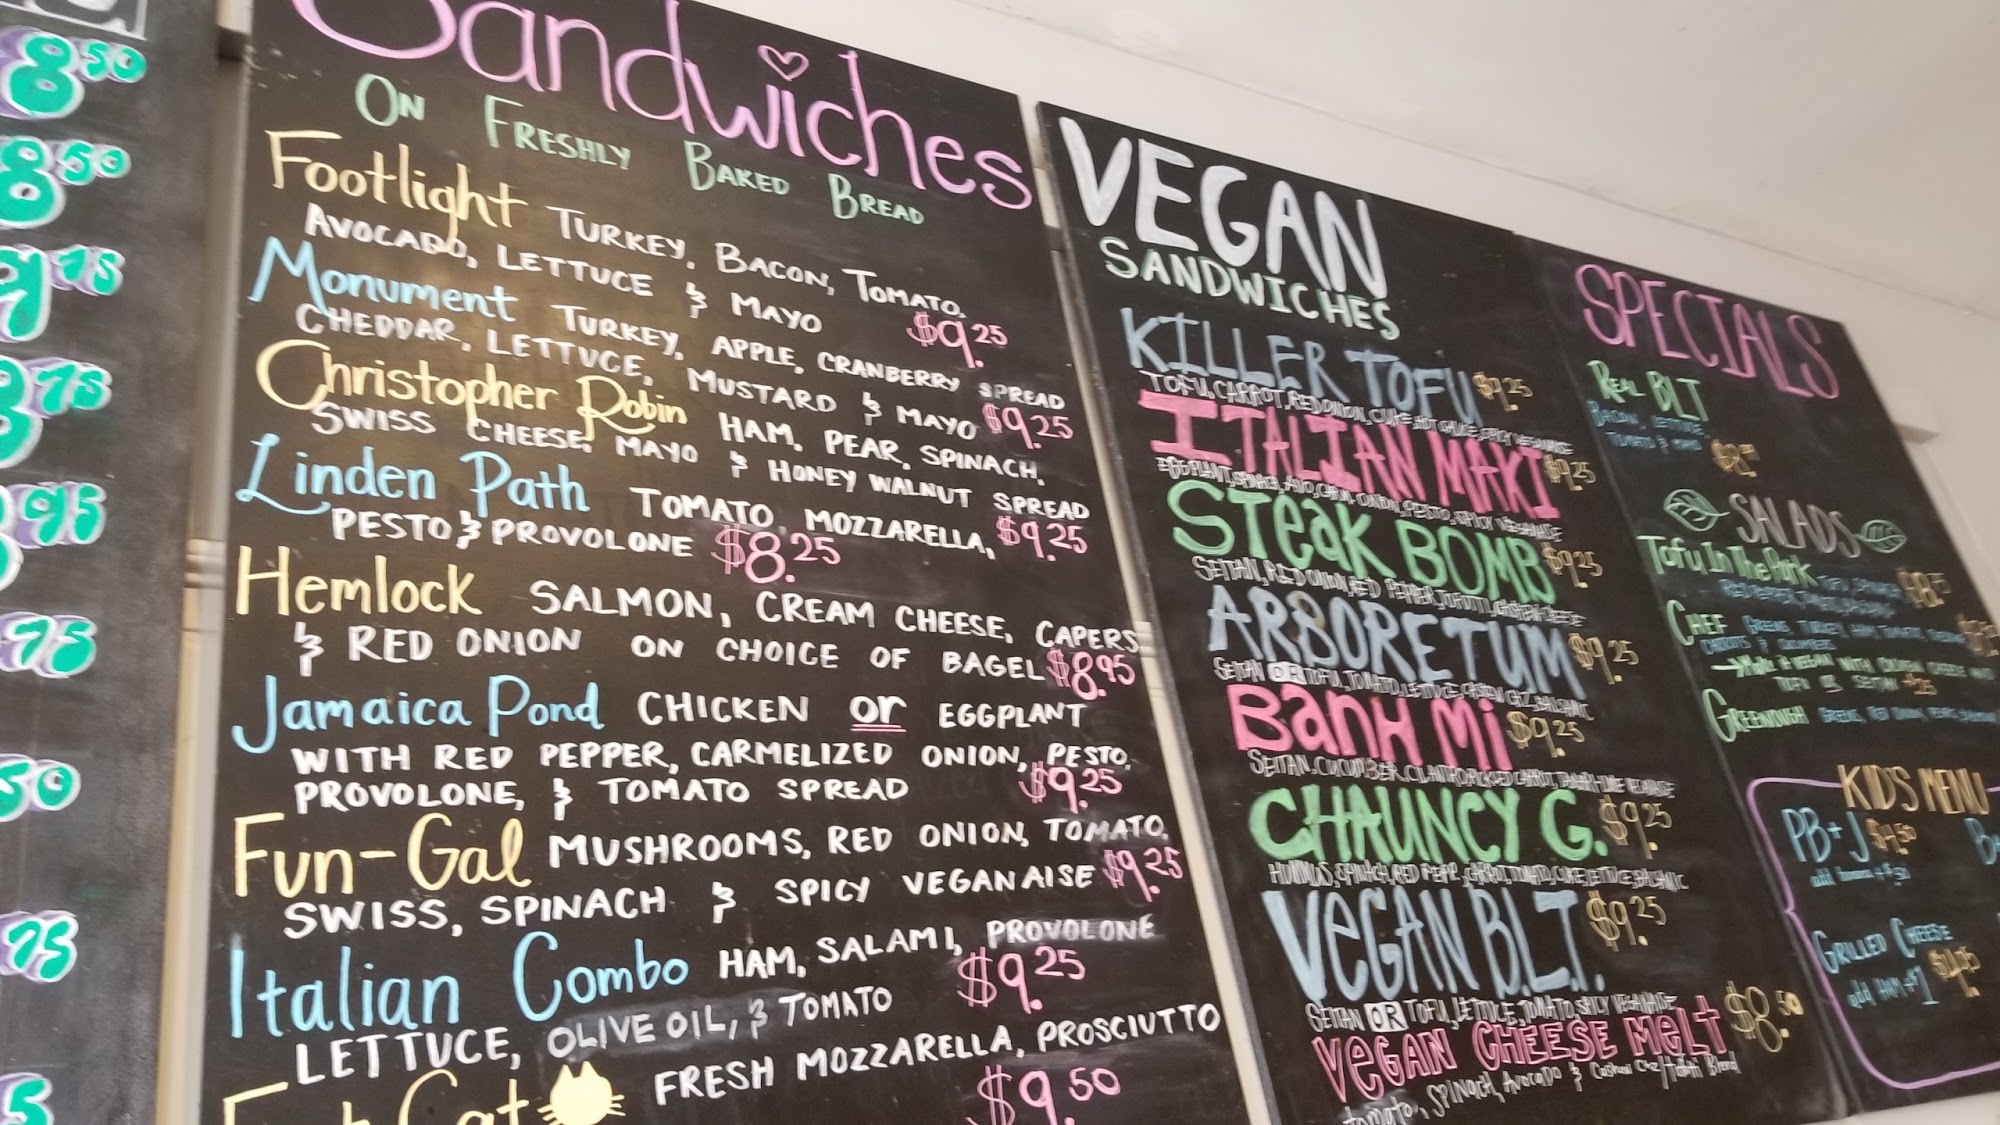 8.50
8.50
9.75
75
95
75
50
75
5
Sandwiches
On Freshly Baked Bread
Footlight Turkey, Bacon, Tomato,
Avocado, Lettuce & Mayo $9.25
Monument Turkey, Apple, Cranberry Spread
Cheddar, Lettuce, Mustard & Mayo $9.25
Christopher Robin Ham, Pear, Spinach,
Swiss Cheese, Mayo & Honey Walnut Spread
$9.25
Linden Path Tomato, Mozzarella,
Pesto & Provolone $8.25
Hemlock Salmon, Cream Cheese, Capers
& Red Onion on Choice of Bagel $8.95
Jamaica Pond Chicken or Eggplant
with Red Pepper, Carmelized Onion, Pesto,
Provolone, & Tomato Spread $9.25
Fun-Gal Mushrooms, Red Onion, Tomato,
Swiss, Spinach & Spicy Veganaise $9.25
Italian Combo Ham, Salami, Provolone
Lettuce, Olive Oil, & Tomato $9.25
Cat Fresh Mozzarella, Prosciutto
$9.50
VEGAN
SANDWICHES
KILLER TOFU $9.25
Tofu, Carrot, Red Onion, Cuke, Hot Sauce, Spicy Veganaise
ITALIAN MAKI $9.25
Eggplant, Onion, Pesto, Spicy Veganaise
STEAK BOMB $9.25
Seitan, Red Onion, Red Pepper, Cheese
ARBORETUM $9.25
Seitan OR Tofu, Tomato, Lettuce, Balsamic
BANH MI $9.25
Seitan, Cucumber, Cilantro, Pickled Carrot, Veganaise
CHAUNCY G. $9.25
Hummus, Spinach, Red Pepper, Carrot, Tomato, Cuke, Lettuce, Balsamic
VEGAN B.L.T. $9.25
Seitan OR Tofu, Lettuce, Tomato, Spicy Veganaise
VEGAN CHEESE MELT $8.50
Tomato, Spinach, Avocado & Cashew Blend
SPECIALS
Real BLT
Bacon, Lettuce
Tomato & Mayo
SALADS
Tofu In The Park Tofu,
Red Pepper,
Chef Greens, Turkey, Ham, Tomato,
Carrots & Cucumbers
→ Make it vegan with Cashew Cheese and
Tofu or Seitan
Greenough Greens, Red Onion,
KID'S MENU
PB+J $4.50
add
GRILLED CHEESE
add Ham +$1